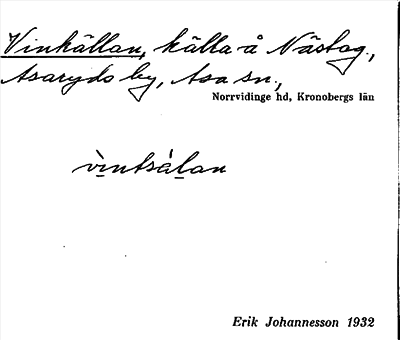 Vinkällan, källa å Nästag.,
Asaryds by, Asa sn.,
Norrvidinge hd, Kronobergs län
vìntsálan
Erik Johannesson 1932